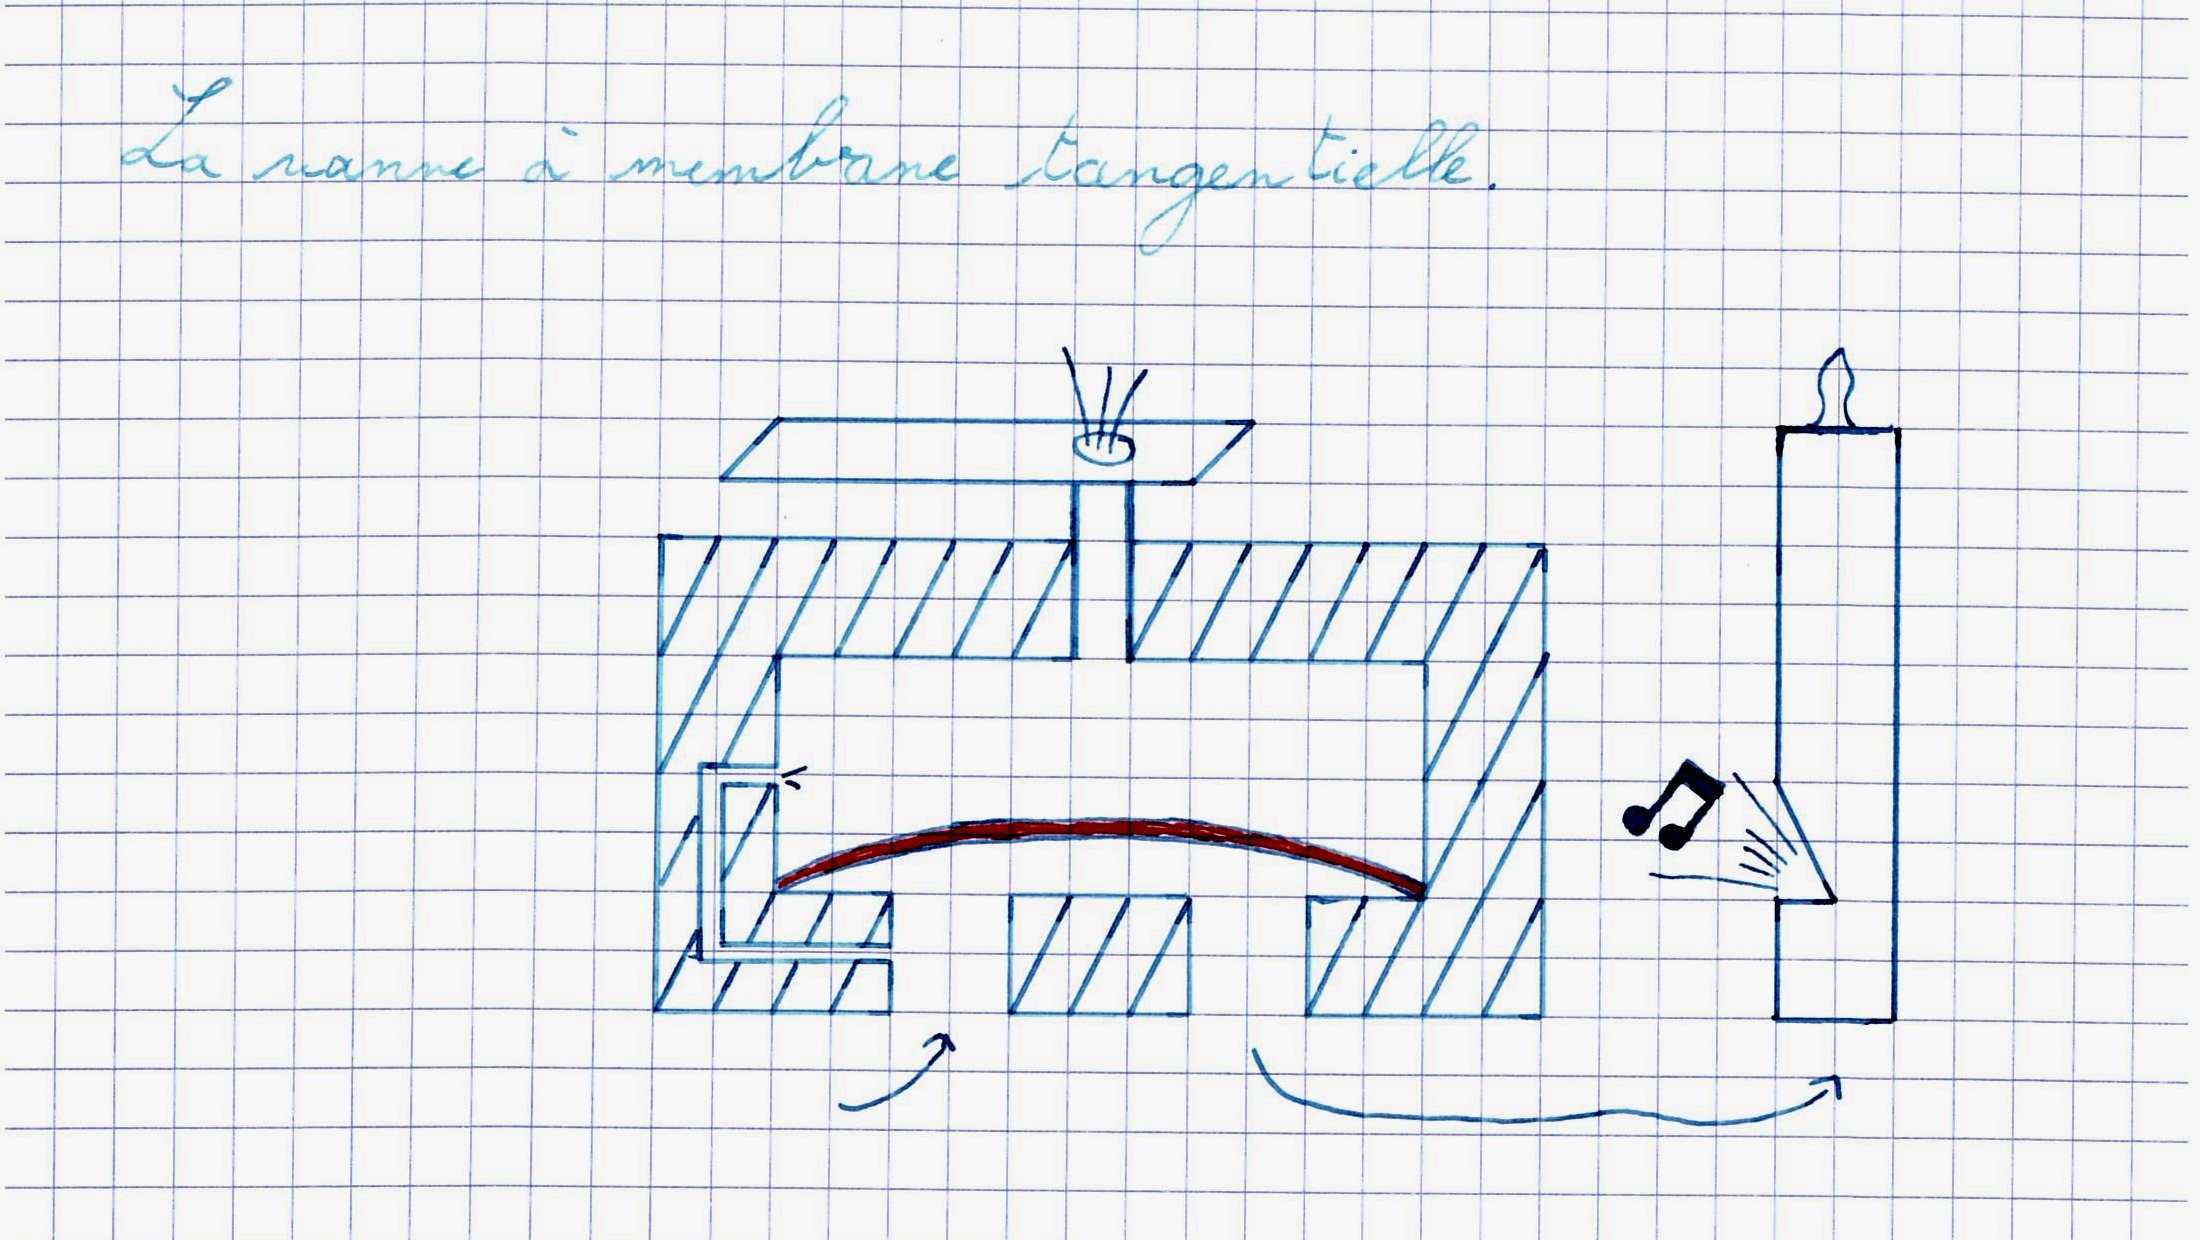 La vanne à membrane tangentielle.